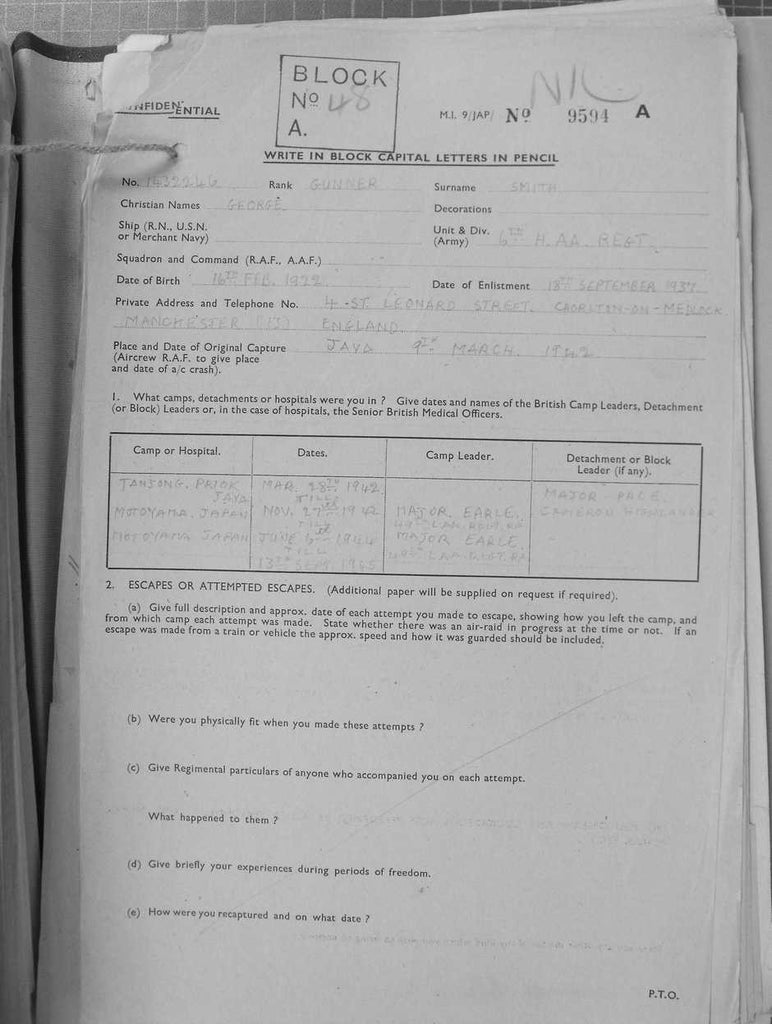 BLOCK
No 48
A.
CONFIDENTIAL
M.I. 9/JAP/ No 9594 A
WRITE IN BLOCK CAPITAL LETTERS IN PENCIL
No. Rank GUNNER Surname SMITH
Christian Names GEORGE Decorations
Ship (R.N., U.S.N.
or Merchant Navy)
Unit & Div.
(Army) 6TH H.AA. REGT
Squadron and Command (R.A.F., A.A.F.)
Date of Birth 16TH FEB. 1922 Date of Enlistment 18TH SEPTEMBER 1937
Private Address and Telephone No. 4 - ST. LEONARD STREET. CHORLTON-ON-MEDLOCK
MANCHESTER (13) ENGLAND.
Place and Date of Original Capture JAVA 9TH MARCH. 1942
(Aircrew R.A.F. to give place
and date of a/c crash).
1. What camps, detachments or hospitals were you in ? Give dates and names of the British Camp Leaders, Detachment
(or Block) Leaders or, in the case of hospitals, the Senior British Medical Officers.
Camp or Hospital. Dates. Camp Leader. Detachment or Block
Leader (if any).
TANJONG. PRIOK MAR. 28TH 1942 MAJOR
JAVA TILL
MOTOYAMA. JAPAN NOV. 27TH 1942 MAJOR. EARLE. CAMERON HIGHLANDER
TILL
MOTOYAMA JAPAN JUNE 1944 MAJOR EARLE
TILL
13TH SEPT 1945
2. ESCAPES OR ATTEMPTED ESCAPES. (Additional paper will be supplied on request if required).
(a) Give full description and approx. date of each attempt you made to escape, showing how you left the camp, and
from which camp each attempt was made. State whether there was an air-raid in progress at the time or not. If an
escape was made from a train or vehicle the approx. speed and how it was guarded should be included.
(b) Were you physically fit when you made these attempts ?
(c) Give Regimental particulars of anyone who accompanied you on each attempt.
What happened to them ?
(d) Give briefly your experiences during periods of freedom.
(e) How were you recaptured and on what date ?
P.T.O.